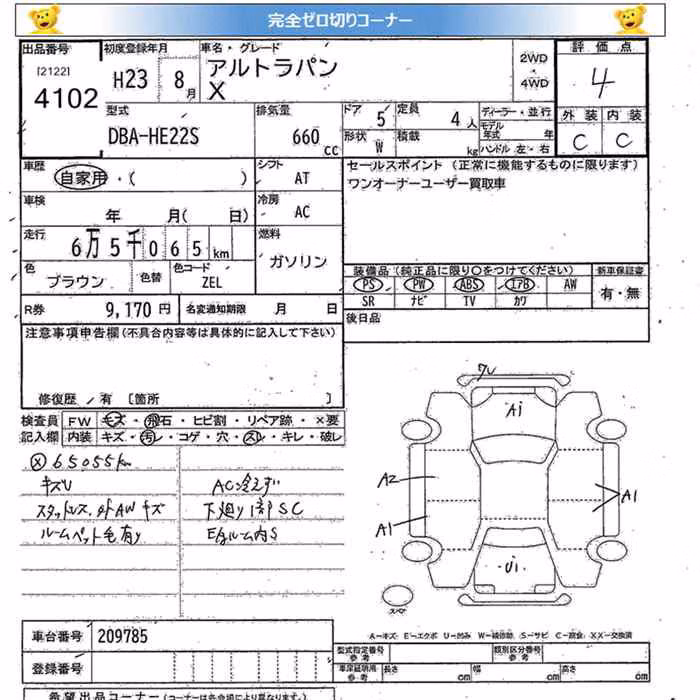 完全ゼロ切りコーナー
出品番号 初度登録年月 車名・グレード 評価点
[2122] 4102 H23 8月 アルトラパン X 2WD 4WD 4
型式 排気量 ドア 5 定員 4人 ディーラー・並行 外装 内装
DBA-HE22S 660cc 形状 W 積載 kg モデル年式 年 ハンドル 左・右 C C
車歴 自家用・( ) シフト AT セールスポイント (正常に機能するものに限ります)
ワンオーナーユーザー買取車
車検 年 月( 日) 冷房 AC
走行 6万5千065km 燃料 ガソリン
色 ブラウン 色替 色コード ZEL
装備品 (純正品に限り〇をつけてください) 新車保証書
PS PW ABS エアB AW 有・無
SR ナビ TV カワ
R券 9,170円 名変通知期限 月 日 後日品
注意事項申告欄(不具合内容等は具体的に記入して下さい)
修復歴 / 有 [箇所 ]
検査員 FW キズ・飛石・ヒビ割・リペア跡・×要
記入欄 内装 キズ・汚レ・コゲ・穴・スレ・キレ・破レ
ⓧ 65055km
キズU AC冷えず
スタッドレス、社外AWキズ 下廻り1部SC
ルームペット毛有り E/gルーム内S
ワレ
A1
A2 A1
A1
U1
スペア
A-キズ E-エクボ U-凹み W-補修跡 S-サビ C-腐食 XX-交換済
車台番号 209785
型式指定番号 参考 類別区分番号 参考
登録番号 車庫証明用 参考 長さ cm 幅 cm 高さ cm
希望出品コーナー (コーナーは各会場により異なります)